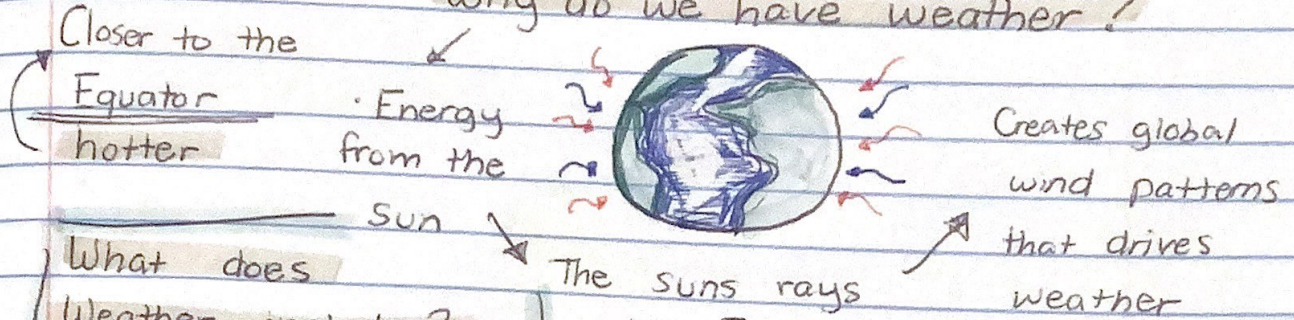 Why do we have weather?
Closer to the
Equator
hotter
· Energy
from the
Sun
The suns rays
Creates global
wind patterns
that drives
weather
What does
Weather